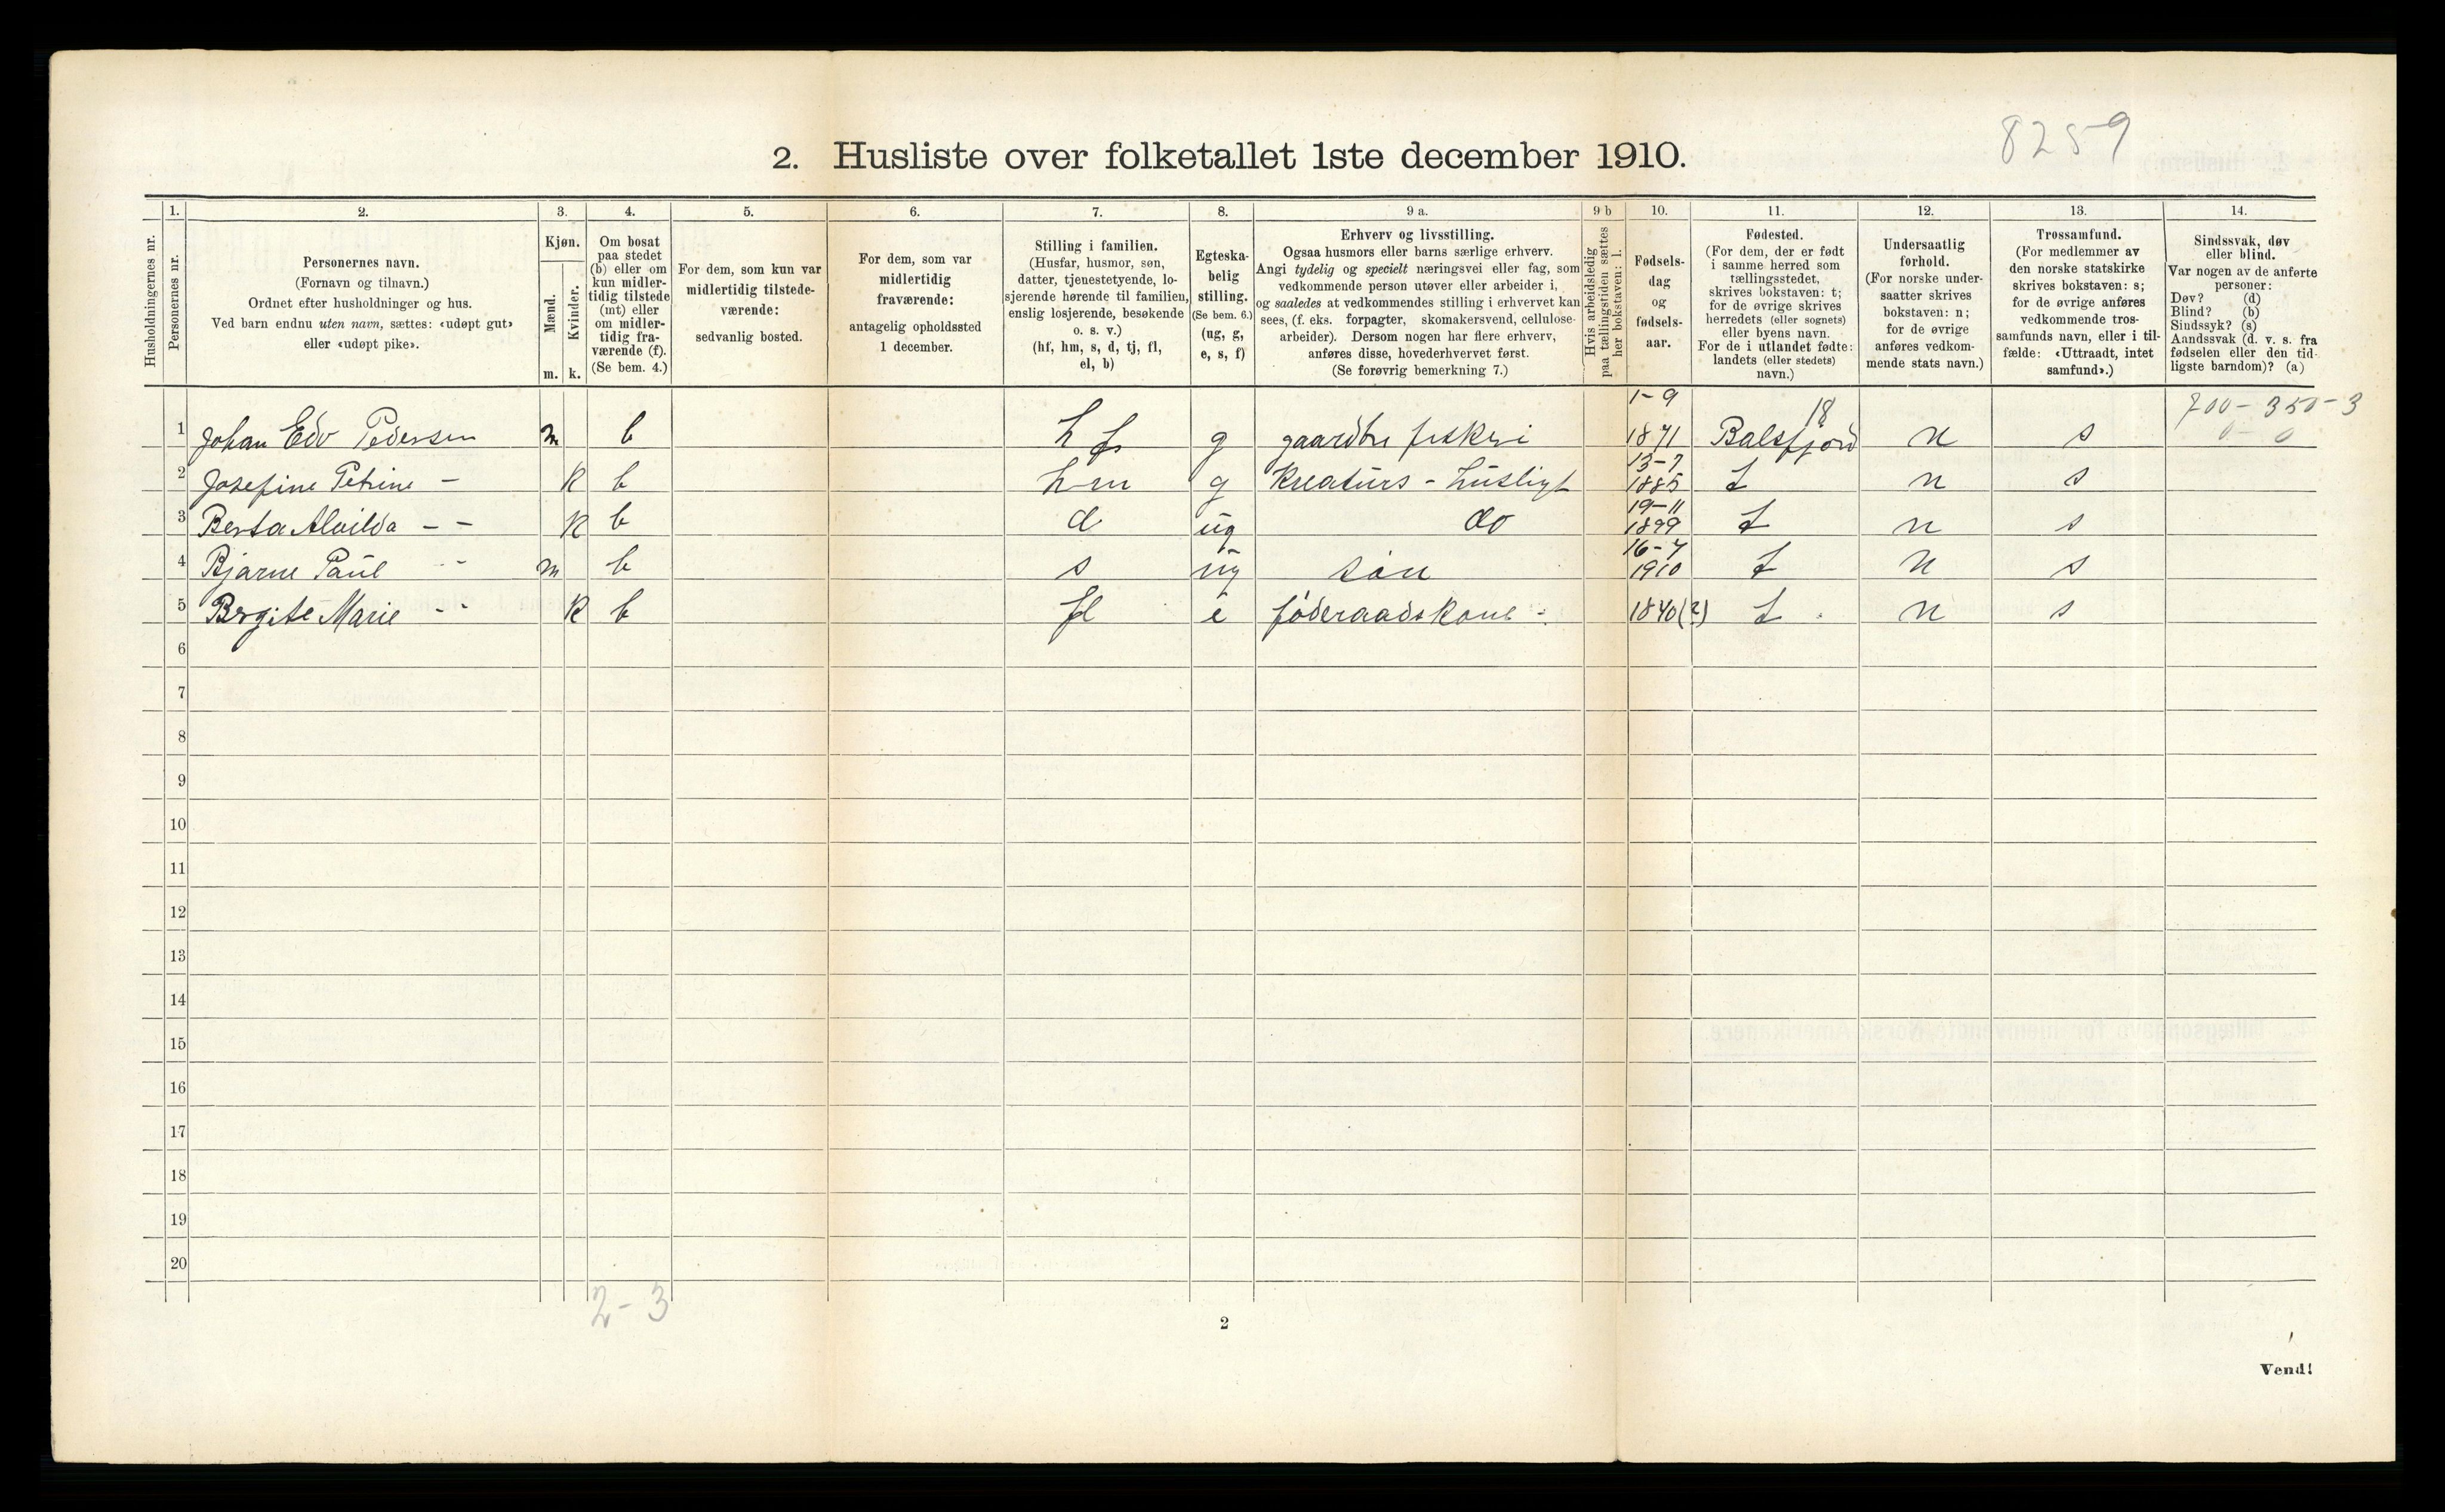 8259
2. Husliste over folketallet 1ste december 1910.
Husholdningernes nr.
1. Personernes nr.
2. Personernes navn.
(Fornavn og tilnavn.)
Ordnet efter husholdninger og hus.
Ved barn endnu uten navn, sættes: «udøpt gut»
eller «udøpt pike».
3. Kjøn.
Mænd. m.
Kvinder. k.
4. Om bosat
paa stedet
(b) eller om
kun midler-
tidig tilstede
(mt) eller
om midler-
tidig fra-
værende (f).
(Se bem. 4.)
5. For dem, som kun var
midlertidig tilstede-
værende:
sedvanlig bosted.
6. For dem, som var
midlertidig
fraværende:
antagelig opholdssted
1 december.
7. Stilling i familien.
(Husfar, husmor, søn,
datter, tjenestetyende, lo-
sjerende hørende til familien,
enslig losjerende, besøkende
o. s. v.)
(hf, hm, s, d, tj, fl,
el, b)
8. Egteska-
belig
stilling.
(Se bem. 6.)
(ug, g,
e, s, f)
9 a. Erhverv og livsstilling.
Ogsaa husmors eller barns særlige erhverv.
Angi tydelig og specielt næringsvei eller fag, som
vedkommende person utøver eller arbeider i,
og saaledes at vedkommendes stilling i erhvervet kan
sees, (f. eks. forpagter, skomakersvend, cellulose-
arbeider). Dersom nogen har flere erhverv,
anføres disse, hovederhvervet først.
(Se forøvrig bemerkning 7.)
9 b Hvis arbeidsledig
paa tællingstiden sættes
her bokstaven: l.
10. Fødsels-
dag
og
fødsels-
aar.
11. Fødested.
(For dem, der er født
i samme herred som
tællingsstedet,
skrives bokstaven: t;
for de øvrige skrives
herredets (eller sognets)
eller byens navn.
For de i utlandet fødte:
landets (eller stedets)
navn.)
12. Undersaatlig
forhold.
(For norske under-
saatter skrives
bokstaven: n;
for de øvrige
anføres vedkom-
mende stats navn.)
13. Trossamfund.
(For medlemmer av
den norske statskirke
skrives bokstaven: s;
for de øvrige anføres
vedkommende tros-
samfunds navn, eller i til-
fælde: «Uttraadt, intet
samfund».)
14. Sindssvak, døv
eller blind.
Var nogen av de anførte
personer:
Døv? (d)
Blind? (b)
Sindssyk? (s)
Aandssvak (d. v. s. fra
fødselen eller den tid-
ligste barndom)? (a)
1 Johan Edv Pedersen m b hf g gaardbr fiskeri 1-9 1871 18 Balsfjord n s 700-350-3 0-0
2 Josefine Petrine - k b hm g Kreaturs - husligt 13-7 1885 t n s
3 Berta Alvilda - - k b d ug do 19-11 1899 t n s
4 Bjarne Paul - m b s ug søn 16-7 1910 t n s
5 Brgite Marie - - k b fl e føderaadskone - 1840(?) t n s
6
7
8
9
10
11
12
13
14
15
16
17
18
19
20
2-3
2
Vend!